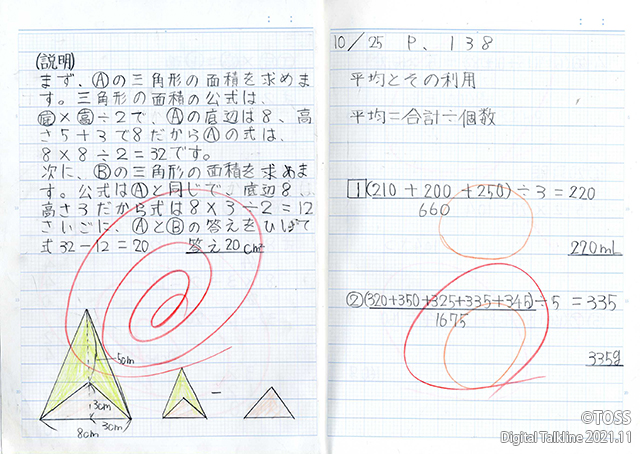 (説明)
まず、Ⓐの三角形の面積を求めま
す。三角形の面積の公式は、
底×高÷2で、Ⓐの底辺は8、高
さ5+3で8だからⒶの式は、
8×8÷2=32です。
次に、Ⓑの三角形の面積を求めま
す。公式はⒶと同じで、底辺8
高さ3だから式は8×3÷2=12
さいごに、ⒶとⒷの答えをひいて
式32-12=20 答え20cm²
5cm
3cm
8cm 3cm
-
10/25 P、138
平均とその利用
平均=合計÷個数
1 (210+200+250)÷3=220
660
220mL
② (320+350+325+335+345)÷5=335
1675
335g
©TOSS
Digital Talkline 2021.11